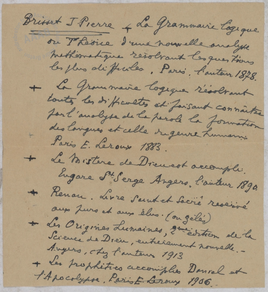 Brisset J. Pierre + La Grammaire logique
ou Théorie d'une nouvelle analyse
mathématique résolvant les questions
les plus difficiles. Paris, l'auteur 1878.
+ La Grammaire logique résolvant
toutes les difficultés et faisant connaître
par l'analyse de la parole la formation
des langues et celle du genre humain
Paris E. Leroux 1883.
+ Le Mystère de Dieu est accompli.
St Serge Angers, l'auteur 1890
+ Livre Saint et Sacré
aux purs et aux
+ Les Origines humaines, 2me édition de la
Science de Dieu, entièrement nouvelle -
Angers, chez l'auteur 1913
+ Les prophéties accomplies Daniel et
l'Apocalypse. Paris E. Leroux 1906.